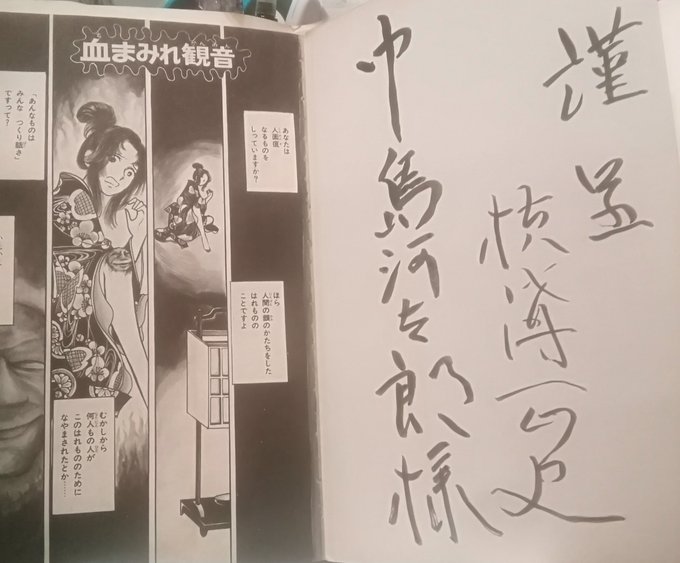 謹呈
横溝正史
中島河太郎様
血まみれ観音
あなたは
人面疽
なるものを
しっていますか？
ほら
人間の顔のかたちをした
はれものの
ことですよ
むかしから
何人もの人が
このはれもののために
なやまされたとか……
「あんなものは
みんな つくり話さ」
ですって？